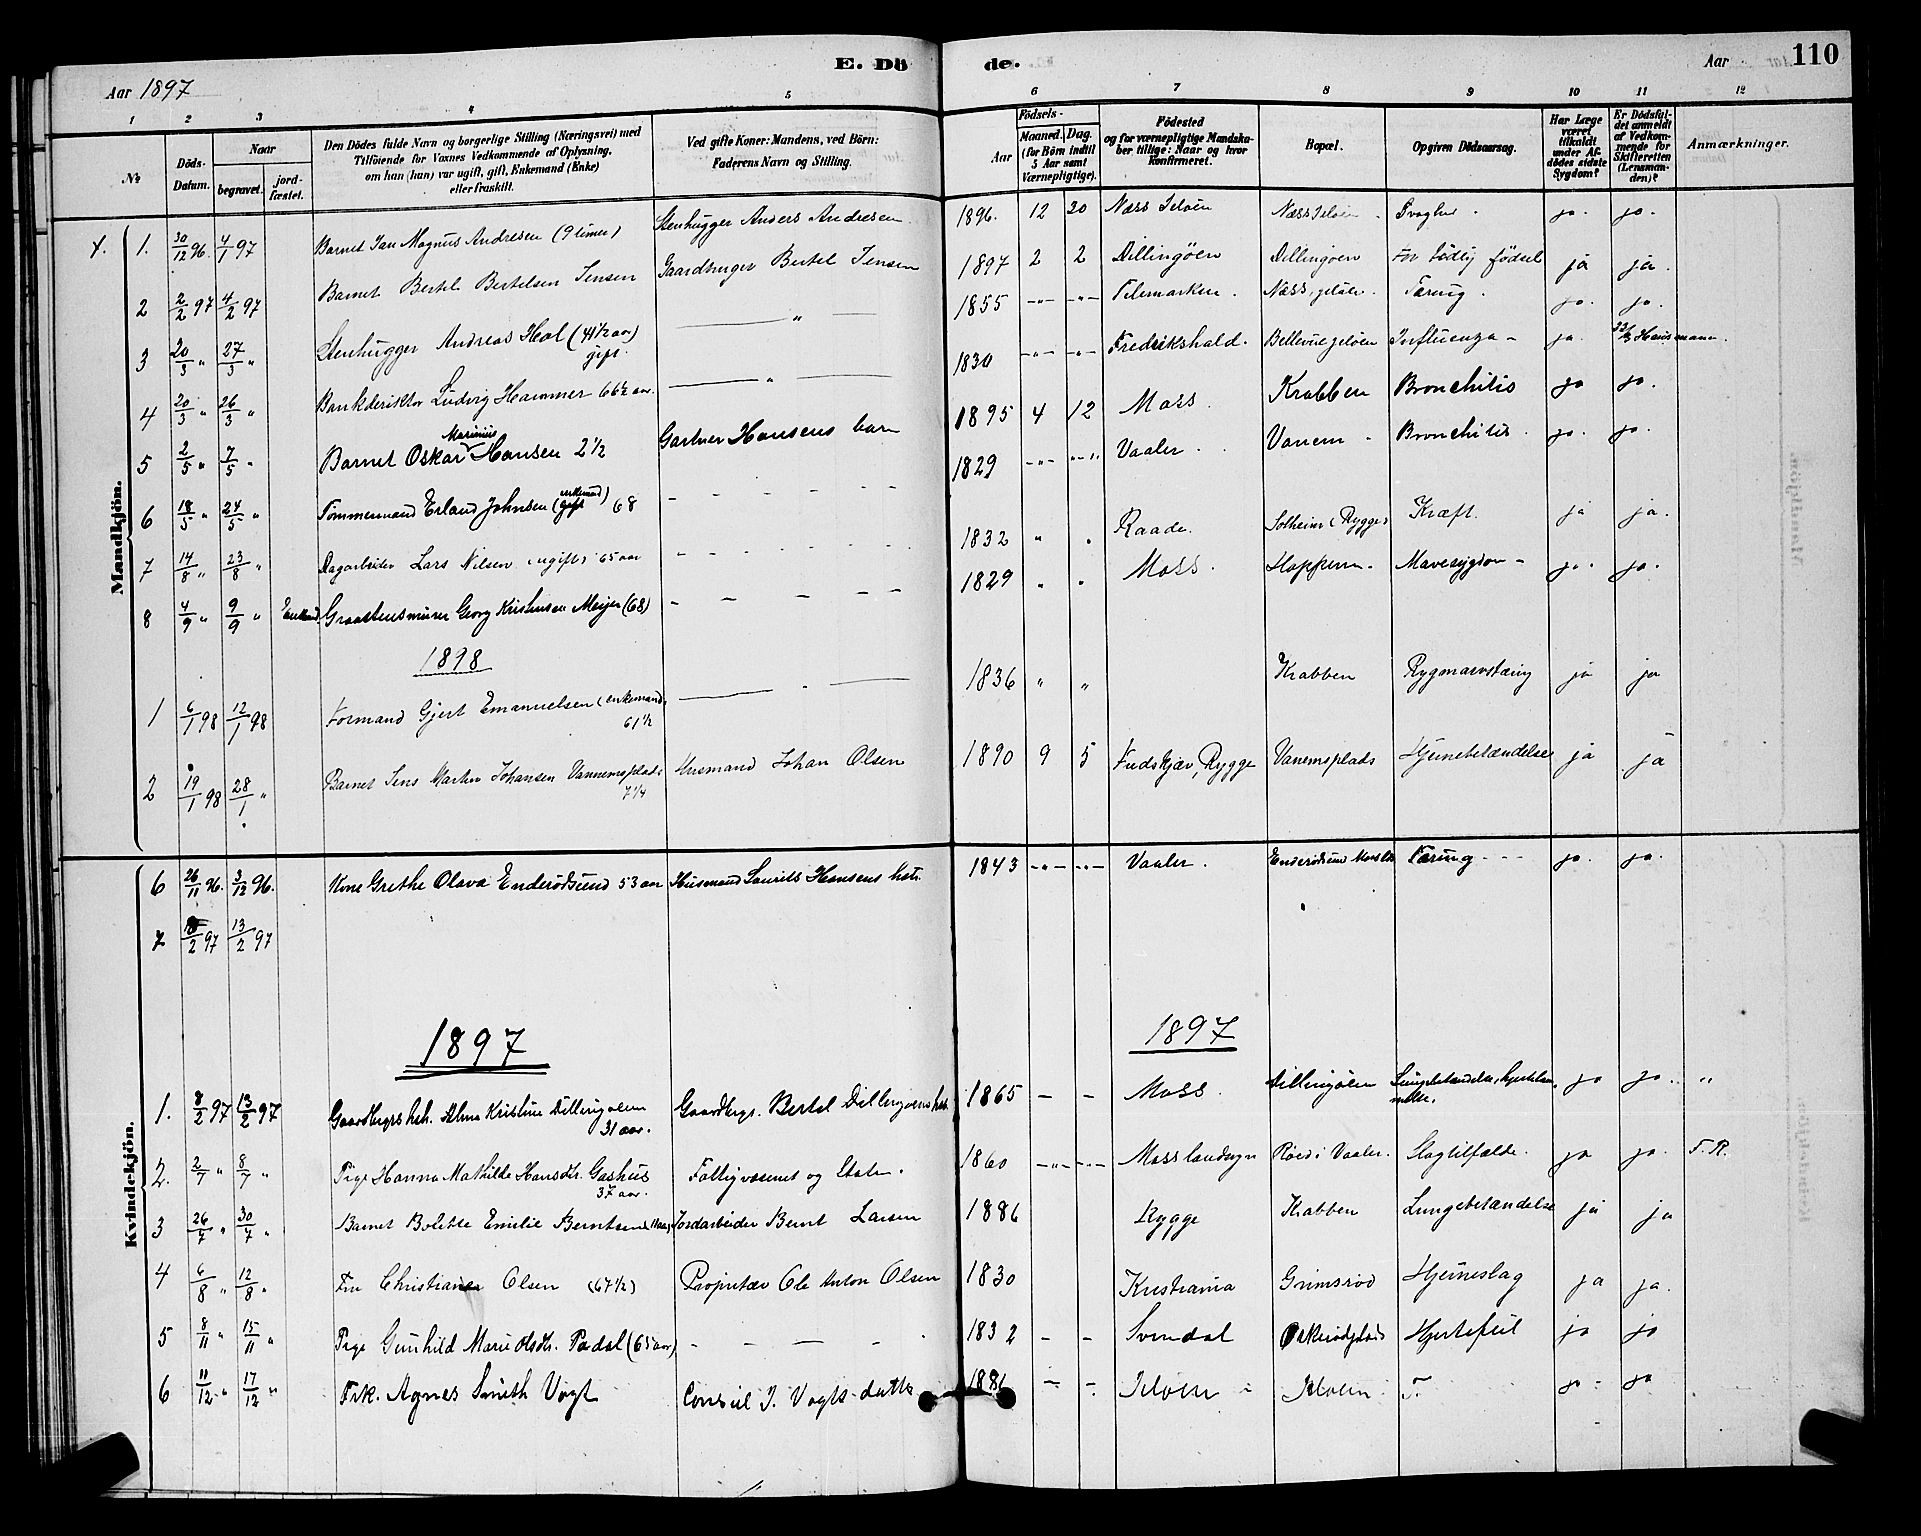 E. Döde.
110
Aar 1897
Aar
1 2 3 4 5 6 7 8 9 10 11 12
№
Döds-Datum.
Naar
begravet. jordfæstet.
Den Dödes fulde Navn og borgerlige Stilling (Næringsvei) med Tilföiende for Voxnes Vedkommende af Oplysning, om han (hun) var ugift, gift, Enkemand (Enke) eller fraskilt.
Ved gifte Koner: Mandens, ved Börn: Faderens Navn og Stilling.
Födsels-
Aar
Maaned. Dag. (for Börn indtil 5 Aar samt Værnepligtige).
Födested og for værnepligtige Mandskaber tillige: Naar og hvor Konfirmeret.
Bopæl.
Opgiven Dödsaarsag.
Har Læge været tilkaldt under Afdödes sidste Sygdom?
Er Dödsfaldet anmeldt af Vedkommende for Skifteretten (Lensmanden)?
Anmærkninger.
Mandkjön.
1. 30/12 96. 4/1 97 Barnet Jan Magnus Andresen (9 timer) Stenhugger Anders Andresen 1896. 12 30 Næss Jeløen Næss Jeløen Svaghed. ja. ja.
2 2/2 97 4/2 97 Barnet Bertel Bertelsen Jensen Gaardbruger Bertel Jensen 1897 2 2 Dillingöen Dillingöen For tidlig födsel ja ja.
3 20/3 " 27/3 " Stenhugger Andreas Hol (41 1/2 aar) gift. — " — 1855 -"- -"- Telemarken. Næss, jeløen. Tæring. ja. ja.
4 20/3 " 26/3 " Bankdirektør Ludvig Hammer 66 1/2 aar. — " — 1830 -"- -"- Fredrikshald. Bellevue jeløen Influenza - ja. Hausmann.
5 2/5 " 7/5 " Barnet Oskar Marinius Hansen 2 1/2 Gartner Hansens barn 1895 4 12 Moss. Krabben Bronchitis ja ja.
6 18/5 " 24/5 " Tømmermand Erland Johnsen (enkemand gift) 68 - - - - - - 1829 -"- -"- Vaaler. Vanem - Bronchitis. ja. ja.
7 14/8 " 23/8 " Dagarbeider Lars Nilsen (ugift) 65 aar - - - - - - 1832 " . Raade. Solheim (Rygge) Kræft. ja ja.
8 4/9 " 9/9 " Enkemd. Graastensmurer Georg Kristensen Meijer (68) - - - - - 1829 . . Moss. Hoppern. Mavesygdom - ja. ja.
1898
1 6/1 98 12/1 98 Formand Gjert Emanuelsen (enkemand) 61 1/2 — . — 1836 " " Krabben Rygmarvstæring ja ja
2 19/1 98 28/1 " Barnet Jens Martin Johansen Vannemsplads 7 1/4 Husmand Johan Olsen 1890 9 5 Fuds kjær, Rygge Vanemsplads Hjernebetændelse ja ja
Kvindekjön.
6 26/11 96. 3/12 96. Kone Grethe Olava Enderødsund 53 aar Husmand Laurits Hansens hstr. 1843 -"- -"- Vaaler. Enderødsund Moss Tæring - - - ja. ja.
7 18/2 97 13/2 97
1897
1897
1. 8/2 97 13/2 97 Gaardbrgrs hstr. Alma Kristine Dillingøen 31 aar. Gaardbrgr. Bertel Dillingøens hstr. 1865 - - Moss. Dillingøen Lungebetændelse, ja ja. "
2. 2/7 " 8/7 " Pige Hanna Mathilde Hansdtr. Gashus 37 aar. Fattigvæsenet og Staten. 1860 -"- -"- Moss landsogn Røed i Vaaler. Slagtilfælde. ja ja. F. R.
3 26/7 " 30/7 " Barnet Bolette Emilie Berntsen (11 aar) Jordarbeider Bernt Larsen 1886 Rygge Krabben Lungebetændelse ja ja
4 6/8 " 12/8 " Fru Christiane Olsen (67 1/2) Proprietær Ole Anton Olsen 1830 Kristiania Grimsrød Hjerneslag ja ja.
5 8/11 " 15/11 " Pige Gunhild Marie Olsdtr. Pa dal (65 aar) - - - - 1832 - - Svindal Orkerødplads Hjertefeil ja ja
6 11/12 " 17/12 " Frk. Agnes Smith Vogt Consul J. Vogts datter 1881 - - Jeløen - Jeløen. T. ja - ja